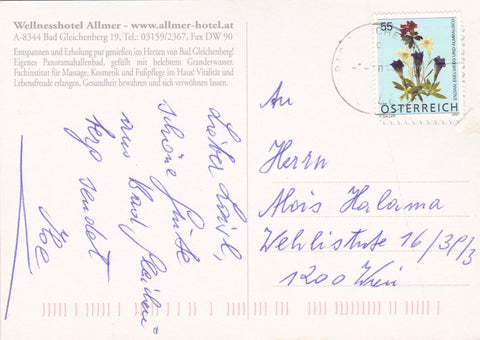 Wellnesshotel Allmer - www.allmer-hotel.at
A-8344 Bad Gleichenberg 19, Tel.: 03159/2367, Fax DW 90
Entspannen und Erholung pur genießen im Herzen von Bad Gleichenberg!
Eigenes Panoramahallenbad, gefüllt mit belebtem Granderwasser.
Fachinstitut für Massage, Kosmetik und Fußpflege im Haus! Vitalität und
Lebensfreude erlangen, Gesundheit bewahren und sich verwöhnen lassen.
Lieber Loisl,
schöne Grüße
aus Bad Gleichen-
berg sendet
55
ENZIAN, EDELWEISS UND ALMRAUSCH
ÖSTERREICH
2007
An
Herrn
Alois Halama
Wehlistraße 16/3/3
1200 Wien